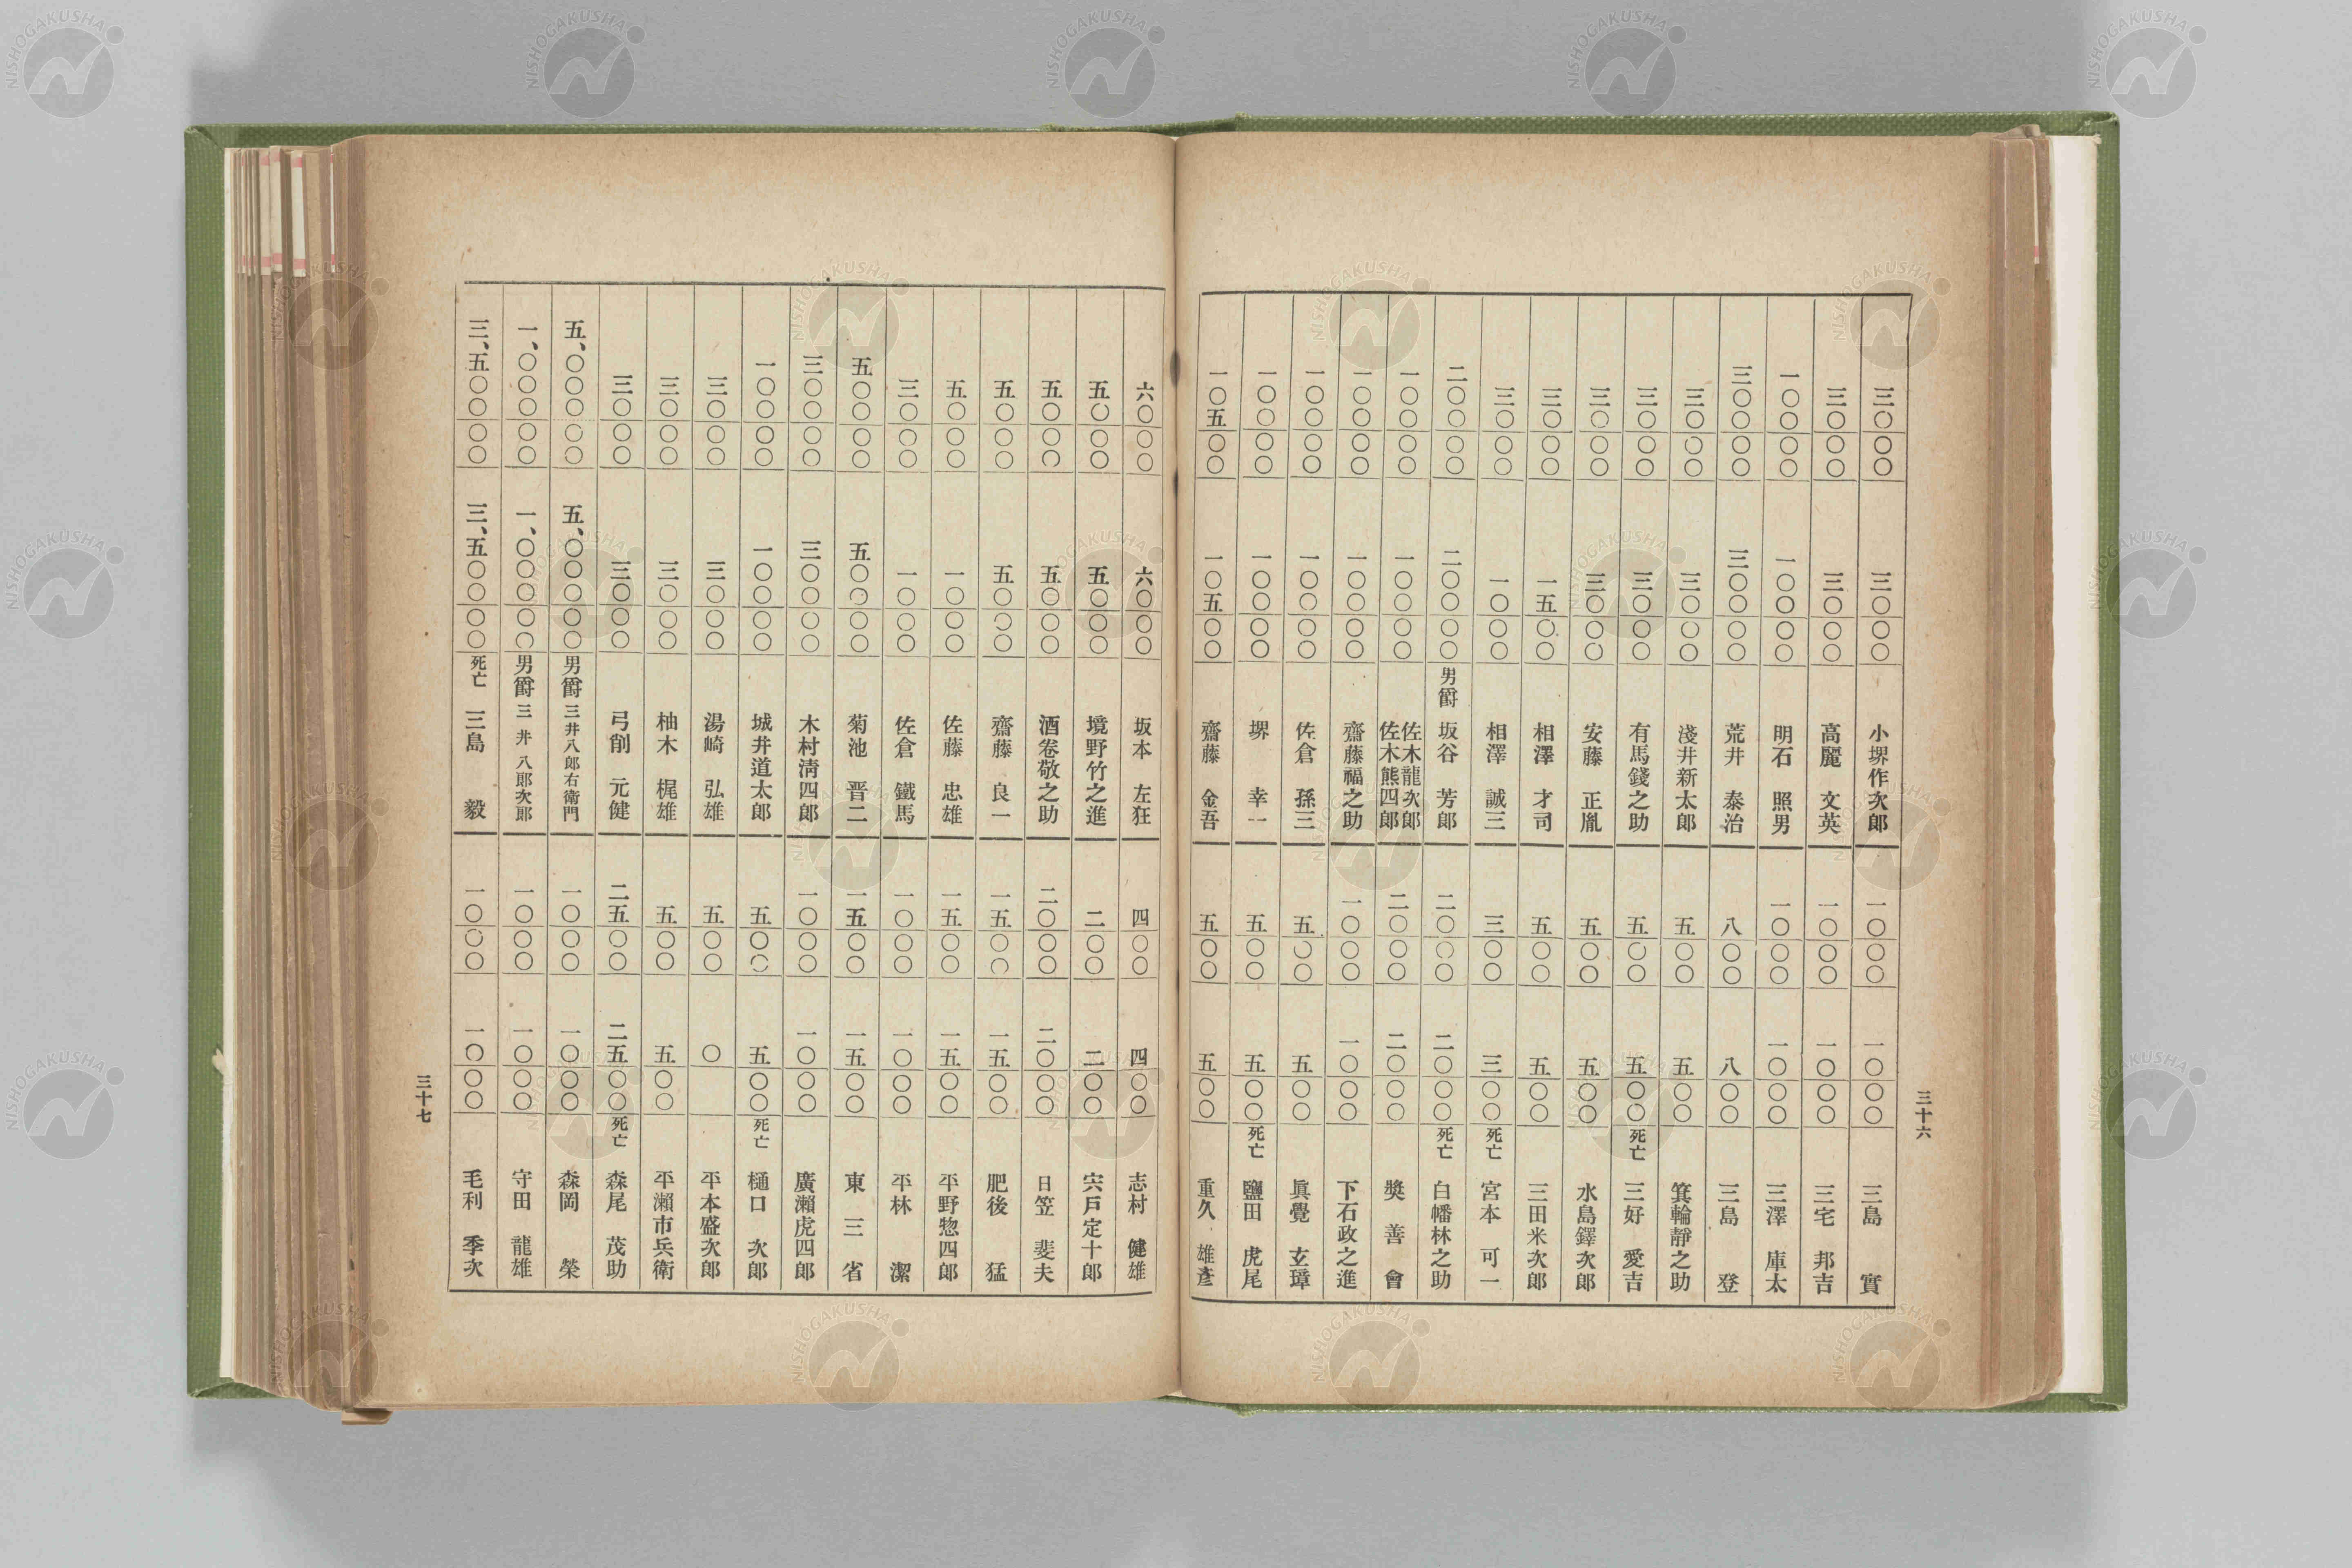 三〇〇〇 三〇〇〇 小堺作次郎
三〇〇〇 三〇〇〇 高麗 文英
一〇〇〇〇 一〇〇〇〇 明石 照男
三〇〇〇〇 三〇〇〇〇 荒井 泰治
三〇〇〇 三〇〇〇 淺井新太郎
三〇〇〇 三〇〇〇 有馬錢之助
三〇〇〇 三〇〇〇 安藤 正胤
三〇〇〇 一五〇〇 相澤 才司
三〇〇〇 一〇〇〇 相澤 誠三
二〇〇〇〇 二〇〇〇〇 男爵 坂谷 芳郎
一〇〇〇〇 一〇〇〇〇 佐木龍次郎 佐木熊四郎
一〇〇〇〇 一〇〇〇〇 齋藤福之助
一〇〇〇〇 一〇〇〇〇 佐倉 孫三
一〇〇〇〇 一〇〇〇〇 堺 幸一
一〇五〇〇 一〇五〇〇 齋藤 金吾
一〇〇〇 一〇〇〇 三島 實
一〇〇〇 一〇〇〇 三宅 邦吉
一〇〇〇 一〇〇〇 三澤 庫太
八〇〇 八〇〇 三島 登
五〇〇 五〇〇 箕輪靜之助
五〇〇 五〇〇 死亡 三好 愛吉
五〇〇 五〇〇 水島鐸次郎
五〇〇 五〇〇 三田米次郎
三〇〇 三〇〇 死亡 宮本 可一
二〇〇〇 二〇〇〇 死亡 白幡林之助
二〇〇〇 二〇〇〇 奬善會
一〇〇〇 一〇〇〇 下石政之進
五〇〇 五〇〇 眞覺 玄璋
五〇〇 五〇〇 死亡 鹽田 虎尾
五〇〇 五〇〇 重久 雄彥
三十六
六〇〇〇 六〇〇〇 坂本 左狂
五〇〇〇 五〇〇〇 境野竹之進
五〇〇〇 五〇〇〇 酒卷敬之助
五〇〇〇 五〇〇〇 齋藤 良一
五〇〇〇 一〇〇〇 佐藤 忠雄
三〇〇〇 一〇〇〇 佐倉 鐵馬
五〇〇〇〇 五〇〇〇〇 菊池 晋二
三〇〇〇〇 三〇〇〇〇 木村淸四郎
一〇〇〇〇 一〇〇〇〇 城井道太郎
三〇〇〇 三〇〇〇 湯崎 弘雄
三〇〇〇 三〇〇〇 柚木 梶雄
三〇〇〇 三〇〇〇 弓削 元健
五、〇〇〇〇〇 五、〇〇〇〇〇 男爵 三井八郎右衞門
一、〇〇〇〇〇 一、〇〇〇〇〇 男爵 三井八郎次郎
三、五〇〇〇〇 三、五〇〇〇〇 死亡 三島 毅
四〇〇 四〇〇 志村 健雄
二〇〇 二〇〇 宍戸定十郎
二〇〇〇 二〇〇〇 日笠 斐夫
一五〇〇 一五〇〇 肥後 猛
一五〇〇 一五〇〇 平野惣四郎
一〇〇〇 一〇〇〇 平林 潔
一五〇〇 一五〇〇 東 三省
一〇〇〇 一〇〇〇 廣瀨虎四郎
五〇〇 五〇〇 死亡 樋口 次郎
五〇〇 〇 平本盛次郎
五〇〇 五〇〇 平瀨市兵衞
二五〇〇 二五〇〇 死亡 森尾 茂助
一〇〇〇 一〇〇〇 森岡 榮
一〇〇〇 一〇〇〇 守田 龍雄
一〇〇〇 一〇〇〇 毛利 季次
三十七